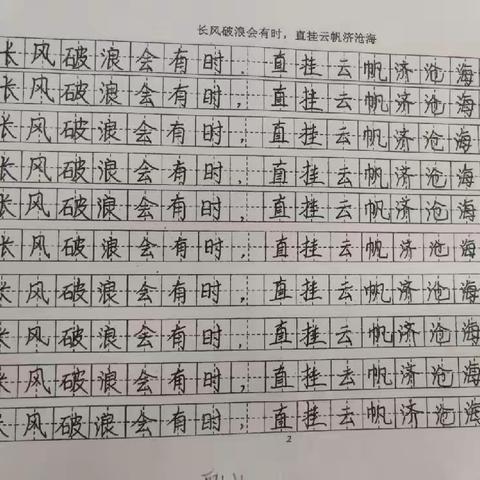 长风破浪会有时，直挂云帆济沧海
长风破浪会有时，直挂云帆济沧海
长风破浪会有时，直挂云帆济沧海
长风破浪会有时，直挂云帆济沧海
长风破浪会有时，直挂云帆济沧海
长风破浪会有时，直挂云帆济沧海
长风破浪会有时，直挂云帆济沧海
长风破浪会有时，直挂云帆济沧海
长风破浪会有时，直挂云帆济沧海
长风破浪会有时，直挂云帆济沧海
长风破浪会有时，直挂云帆济沧海
2